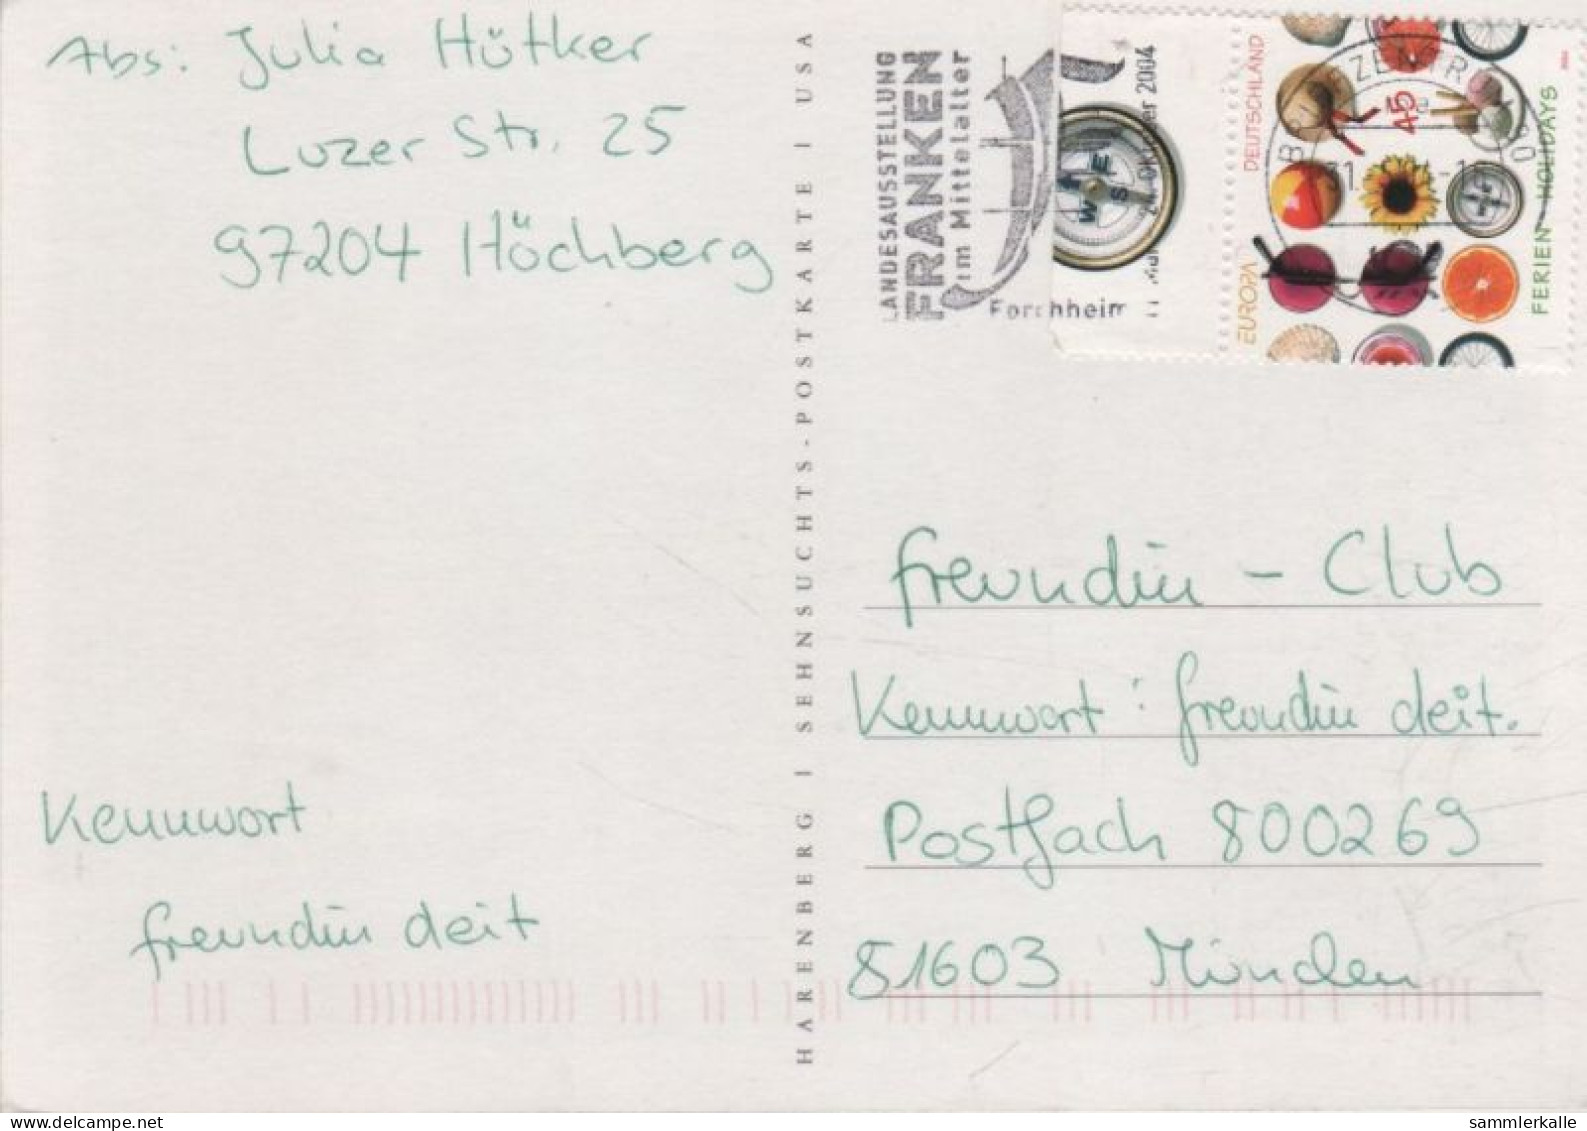 Abs: Julia Hütker
Luzer Str. 25
97204 Höchberg
Kennwort
freundin deit
HARENBERG | SEHNSUCHTS-POSTKARTE | USA
LANDESAUSSTELLUNG
FRANKEN
im Mittelalter
Forchheim
24. Oktober 2004
DEUTSCHLAND
EUROPA
45
FERIEN · HOLIDAYS
BRIEFZENTRUM
freundin - Club
Kennwort: freundin deit.
Postfach 800269
81603 München
sammlerkalle